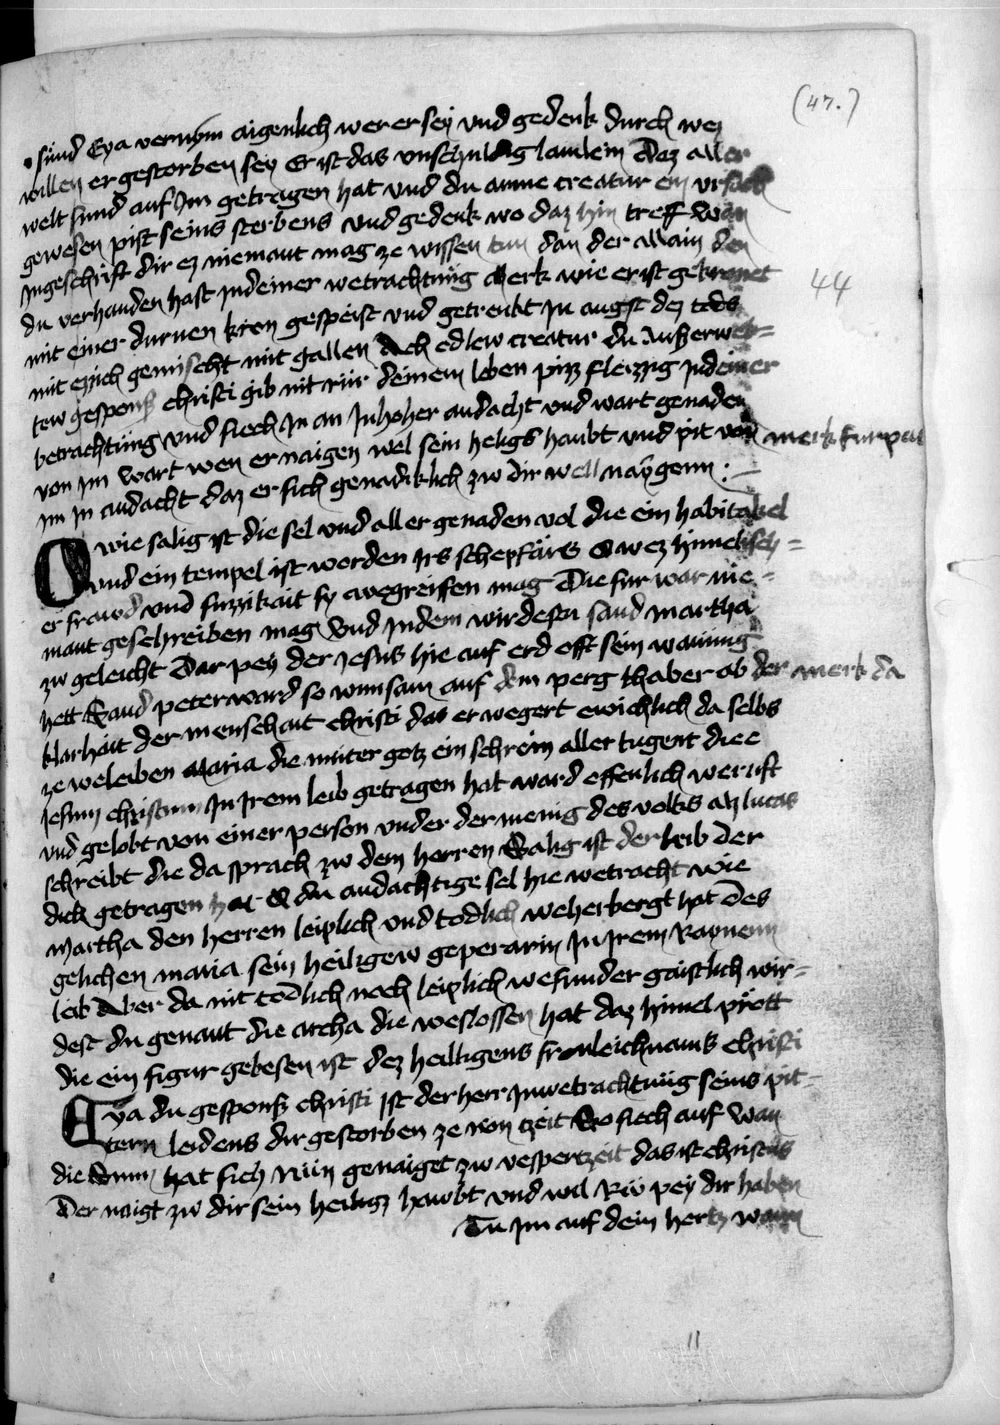 (47.)
sünd Eya vernÿm aigenlich wer er sey vnd gedenk durch wez
willen er gestorben sey Er ist das vnschuldig lamlein Daz aller
welt sund auf Im getragen hat vnd du arme creatur ein vrsach
gewesen pist seins sterbens vnd gedenk wo daz hin treff wan
Ingeschrift dir ez niemant mag ze wissen tun dan der allain den
du verhanden hast In deiner wetrachtung Merk wie er ist gekronet
44
mit einer durnen kron gespeist vnd getrenkt In angst dez tods
mit ezzich gemischt mit gallen Ach edlew creatur du Ausserwel=
tew gesponss christi gib nit rür deinem leben piss fleizzig In deiner
betrachtung vnd siech In an In hoher andacht vnd wart genaden
von Im wart wen er naigen wel sein heligs haubt vnd pit von merk furpas
Im In andacht daz er sich genadiklich zw dir well naygenn :~
O wie salig ist die sel vnd aller genaden vol die ein habitakel
vnd ein tempel ist worden Irs schepfärs O wez himelisch=
er frawd vnd suzzikait sy wegreiffen mag Die fur war nie=
mant geschreiben mag Vnd In dem wirdestu sand martha
zw geleicht Dar pey der Jesus hie auf erd offt sein wanung
hett Sand peter ward so wunsam auf dem perg thabor ob der merk da
klarhait der menschait christi das er wegert ewichlich da selbs
ze weleiben Maria die muter gotz ein schrein aller tugent die
Jesum christum In Irem leib getragen hat ward offenlich weruft
vnd gelobt von einer person vnder der menig des volks alz lucas
schreibt die da sprach zw dem herren Salig ist der leib der
dich getragen hat O du andachtige sel hie wetracht wie
Martha den herren leiplich vnd todlich weherbergt hat Des
gelichen maria sein heiligew geperarin In Irem Raynenn
leib Aber da nit todlich noch leiplich wesunder gaistlich wir=
dest du genant die archa die weslossen hat daz himel prott
die ein figur gebesen ist dez heilligens fronleichnams christi
Eya du gesponss christi Ist der herr In wetrachtung seins pit=
tern leidens dir gestorben ze non tzeit So siech auf wan
die sunn hat sich nün genaiget zw vespertzeit das ist christus
Der naigt zw dir sein heiligz hawbt vnd wil Rü pey dir haben
Tu Im auf dein hertz wann
11